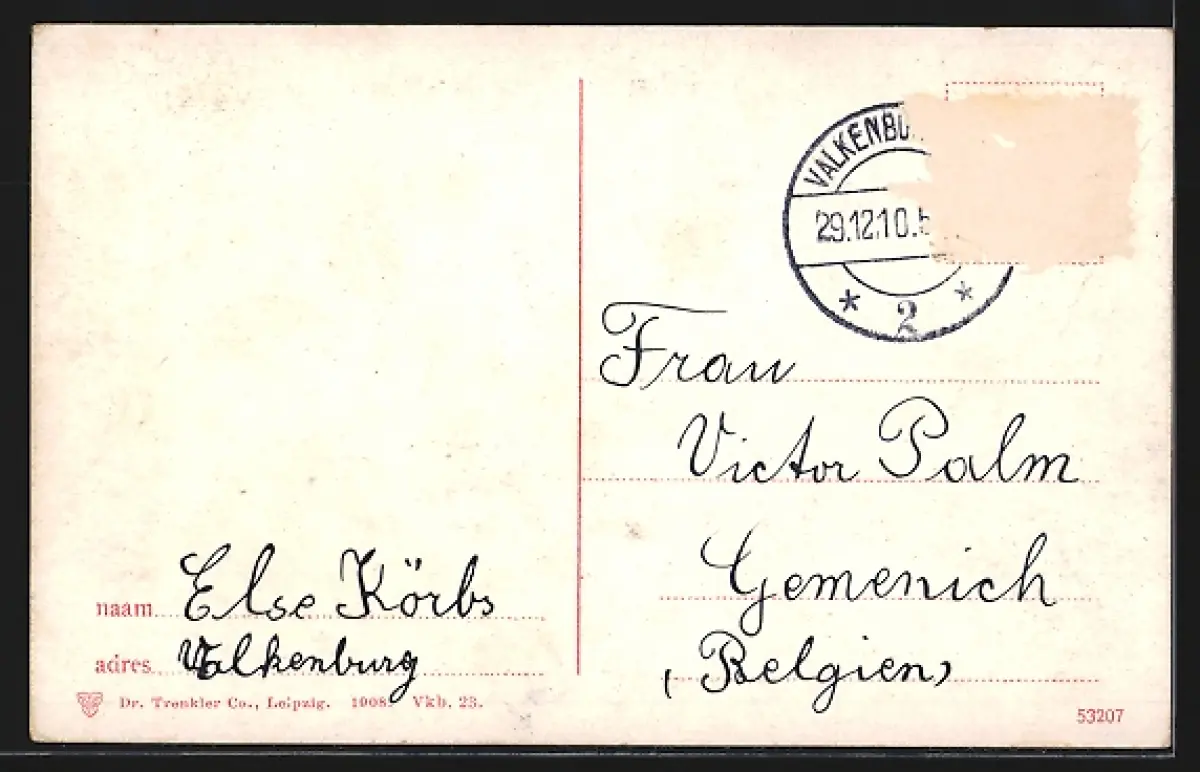 naam Else Körbs
adres Valkenburg
Dr. Trenkler Co., Leipzig. 1908. Vkb. 23.
VALKENBU
29.12.10.5
* 2 *
Frau
Victor Palm
Gemenich
(Belgien)
53207